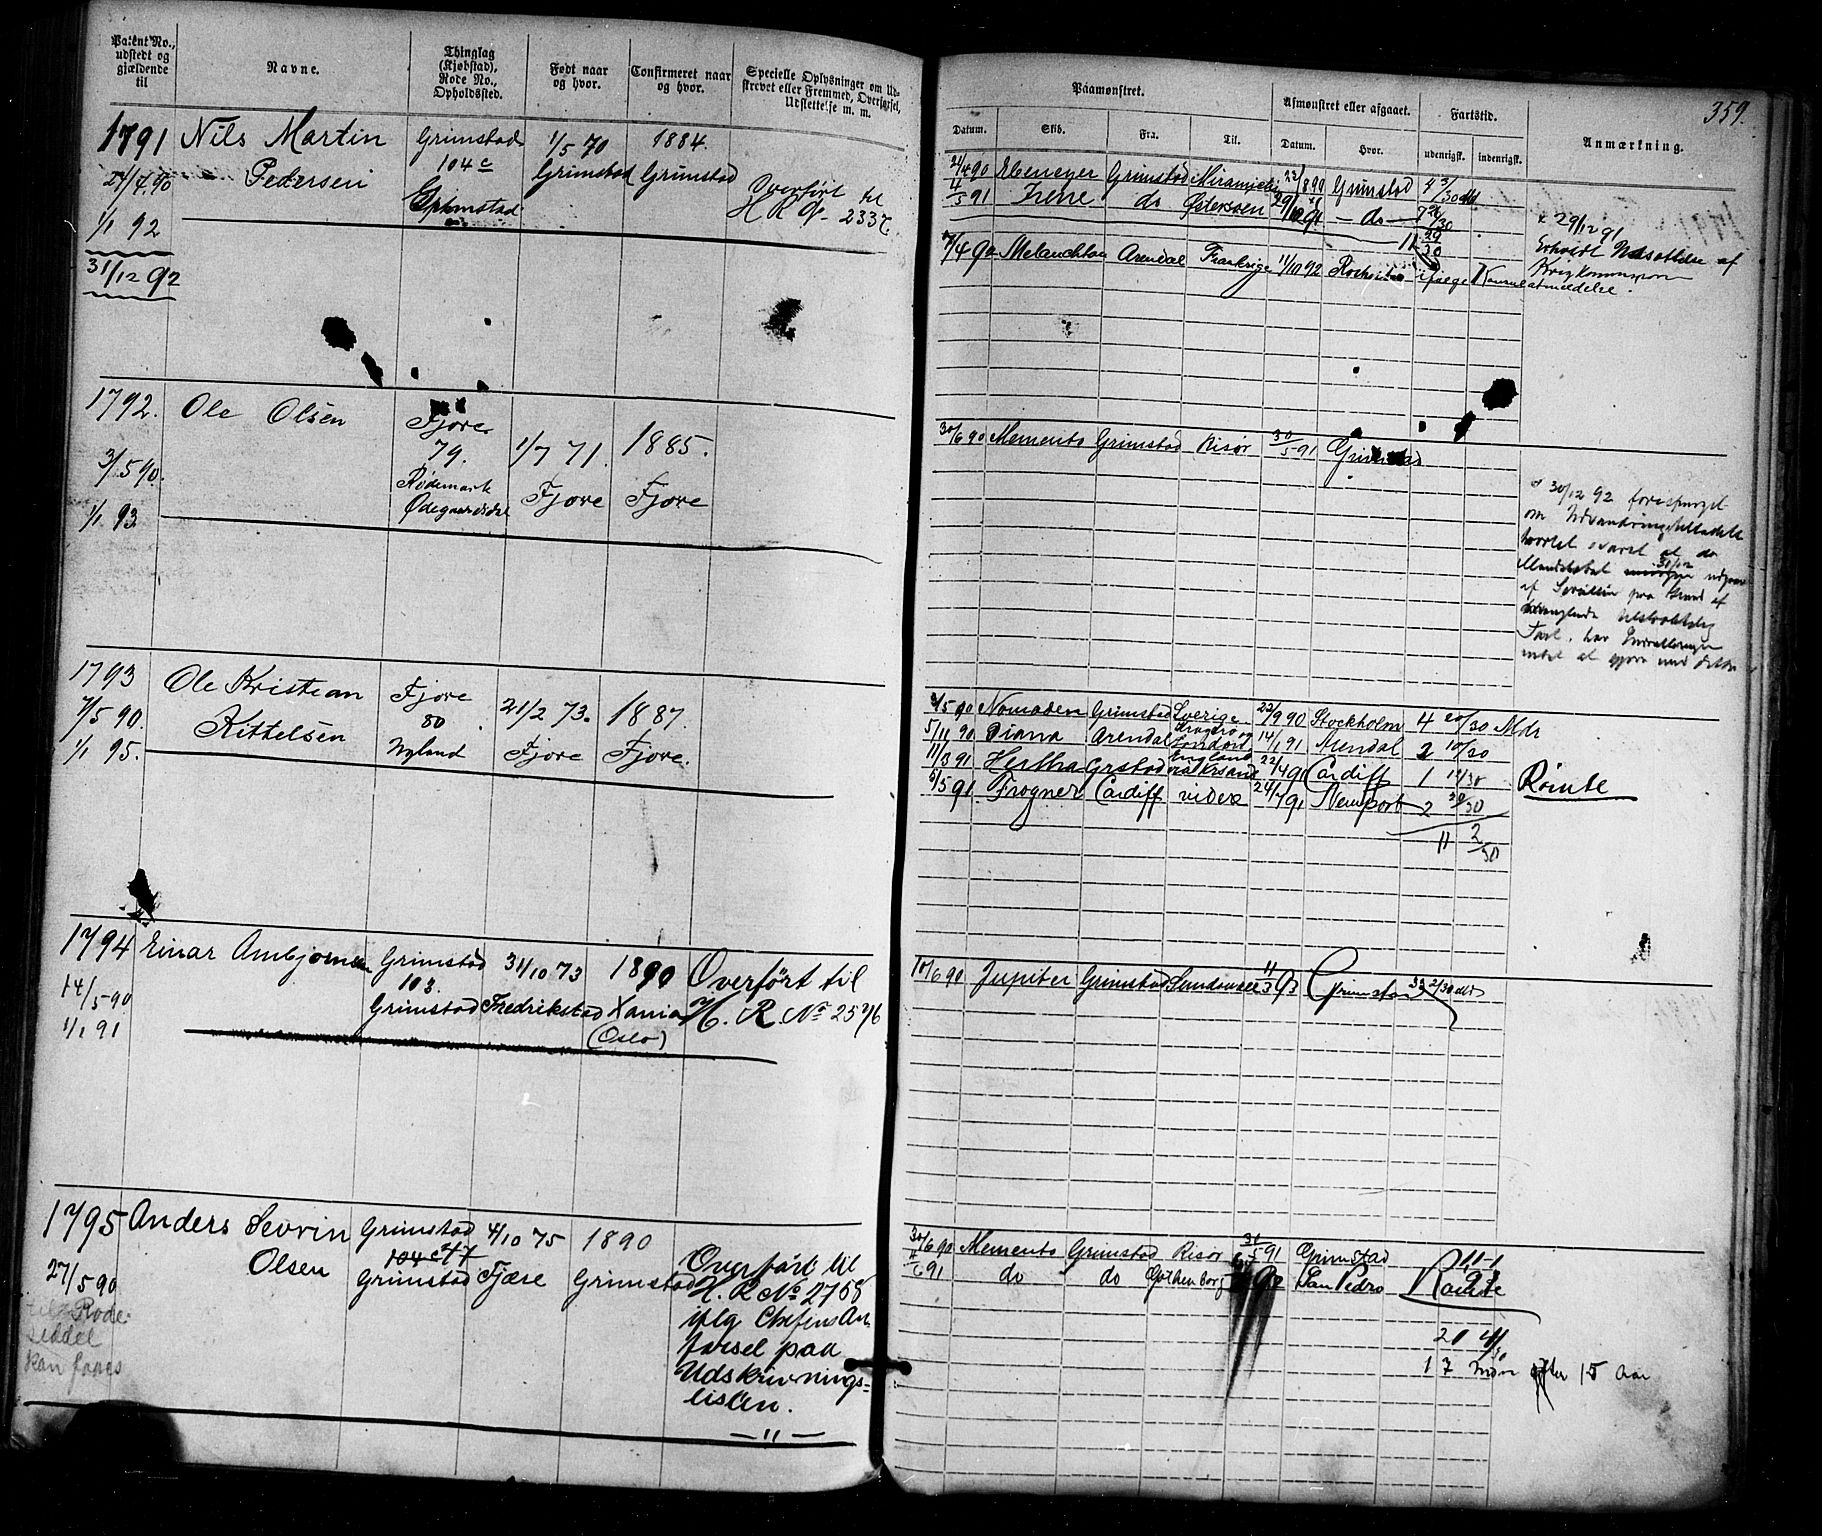 Patent No., udstedt og gjældende til
Navne.
Thinglag (Kjøbstad), Rode No., Opholdssted.
Født naar og hvor.
Confirmeret naar og hvor.
Specielle Oplysninger om Udskrevet eller Fremmed, Overførsel, Udslettelse m. m.
Paamønstret.
Datum.
Skib.
Fra.
Til.
Afmønstret eller afgaaet.
Datum.
Hvor.
Fartstid.
udenrigsk.
indenrigsk.
Anmærkning.
359.
1791
Nils Martin
Pedersen
Grimstad
104 c
Grimstad
1/5 70
Grimstad
1884.
Grimstad
Overført til
H R No 2337.
1/1 92
31/12 92
21/4 90 Ebeneser Grimstad Grimstad 4 3/30 Md
4/5 91 Irene do 29/12 91 - do - 7 26/30
11 29/30
Melanchton Arendal Frankrige 11/10 92
ifølge Konsulatmeldelse.
29/12 91
Erholdt Udsættelse af
1792.
Ole Olsen
Fjære
79.
Rødemark
Ødegaardsdal
1/7 71.
Fjære
1885.
Fjære
3/5 90.
1/1 93
30/6 90 Memento Grimstad Risør 30/5 91 Grimstad
30/12 92 forespurgt
om
svaret at
31/12
af paa Grund af
Fart. har
intet at gjøre med dette
1793
Ole Kristian
Kittelsen
Fjære
80
Nyland
21/2 73.
Fjære
1887.
Fjære.
7/5 90.
1/1 95.
Nomaden Grimstad Sverige 22/9 90 Stockholm 4 20/30 Mdr
5/11 90 Diana Arendal Kragerø og London 14/1 91 Arendal 2 10/30
11/3 91 Hertha Grstad England via Krsand 22/4 91 Cardiff 1 12/30
5/5 91 Frogner Cardiff videre 24/7 91 Newport 2 20/30
11 2/30
Rømte
1794
Einar Ambjørnsen
Grimstad
103.
Grimstad
31/10 73
Fredrikstad
1890
Xania
(Oslo)
Overført til
H. R. No 2576
14/5 90
1/1 91
10/6 90 Jupiter Grimstad 11/3 93 Grimstad 33 2/30 Md
1795
Anders Sevrin
Olsen
Grimstad
104 c 47
Grimstad
4/10 75
Fjære
1890
Grimstad
Overført til
H. R No 2768
iflg Chefens An-
førsel paa
Udskrivnings-
listen.
— " —
27/5 90
Rode-
seddel
kan faaes
30/6 90 Memento Grimstad Risør 31/5 91 Grimstad
11/6 91 do do Gothenborg San Pedro Rømte
20 4/30
17 Mdr efter 15 Aar